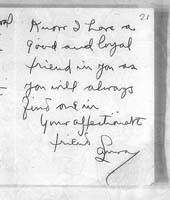 21
Know I have a
good and loyal
friend in you as
you will always
find one in
Your affectionate
friend